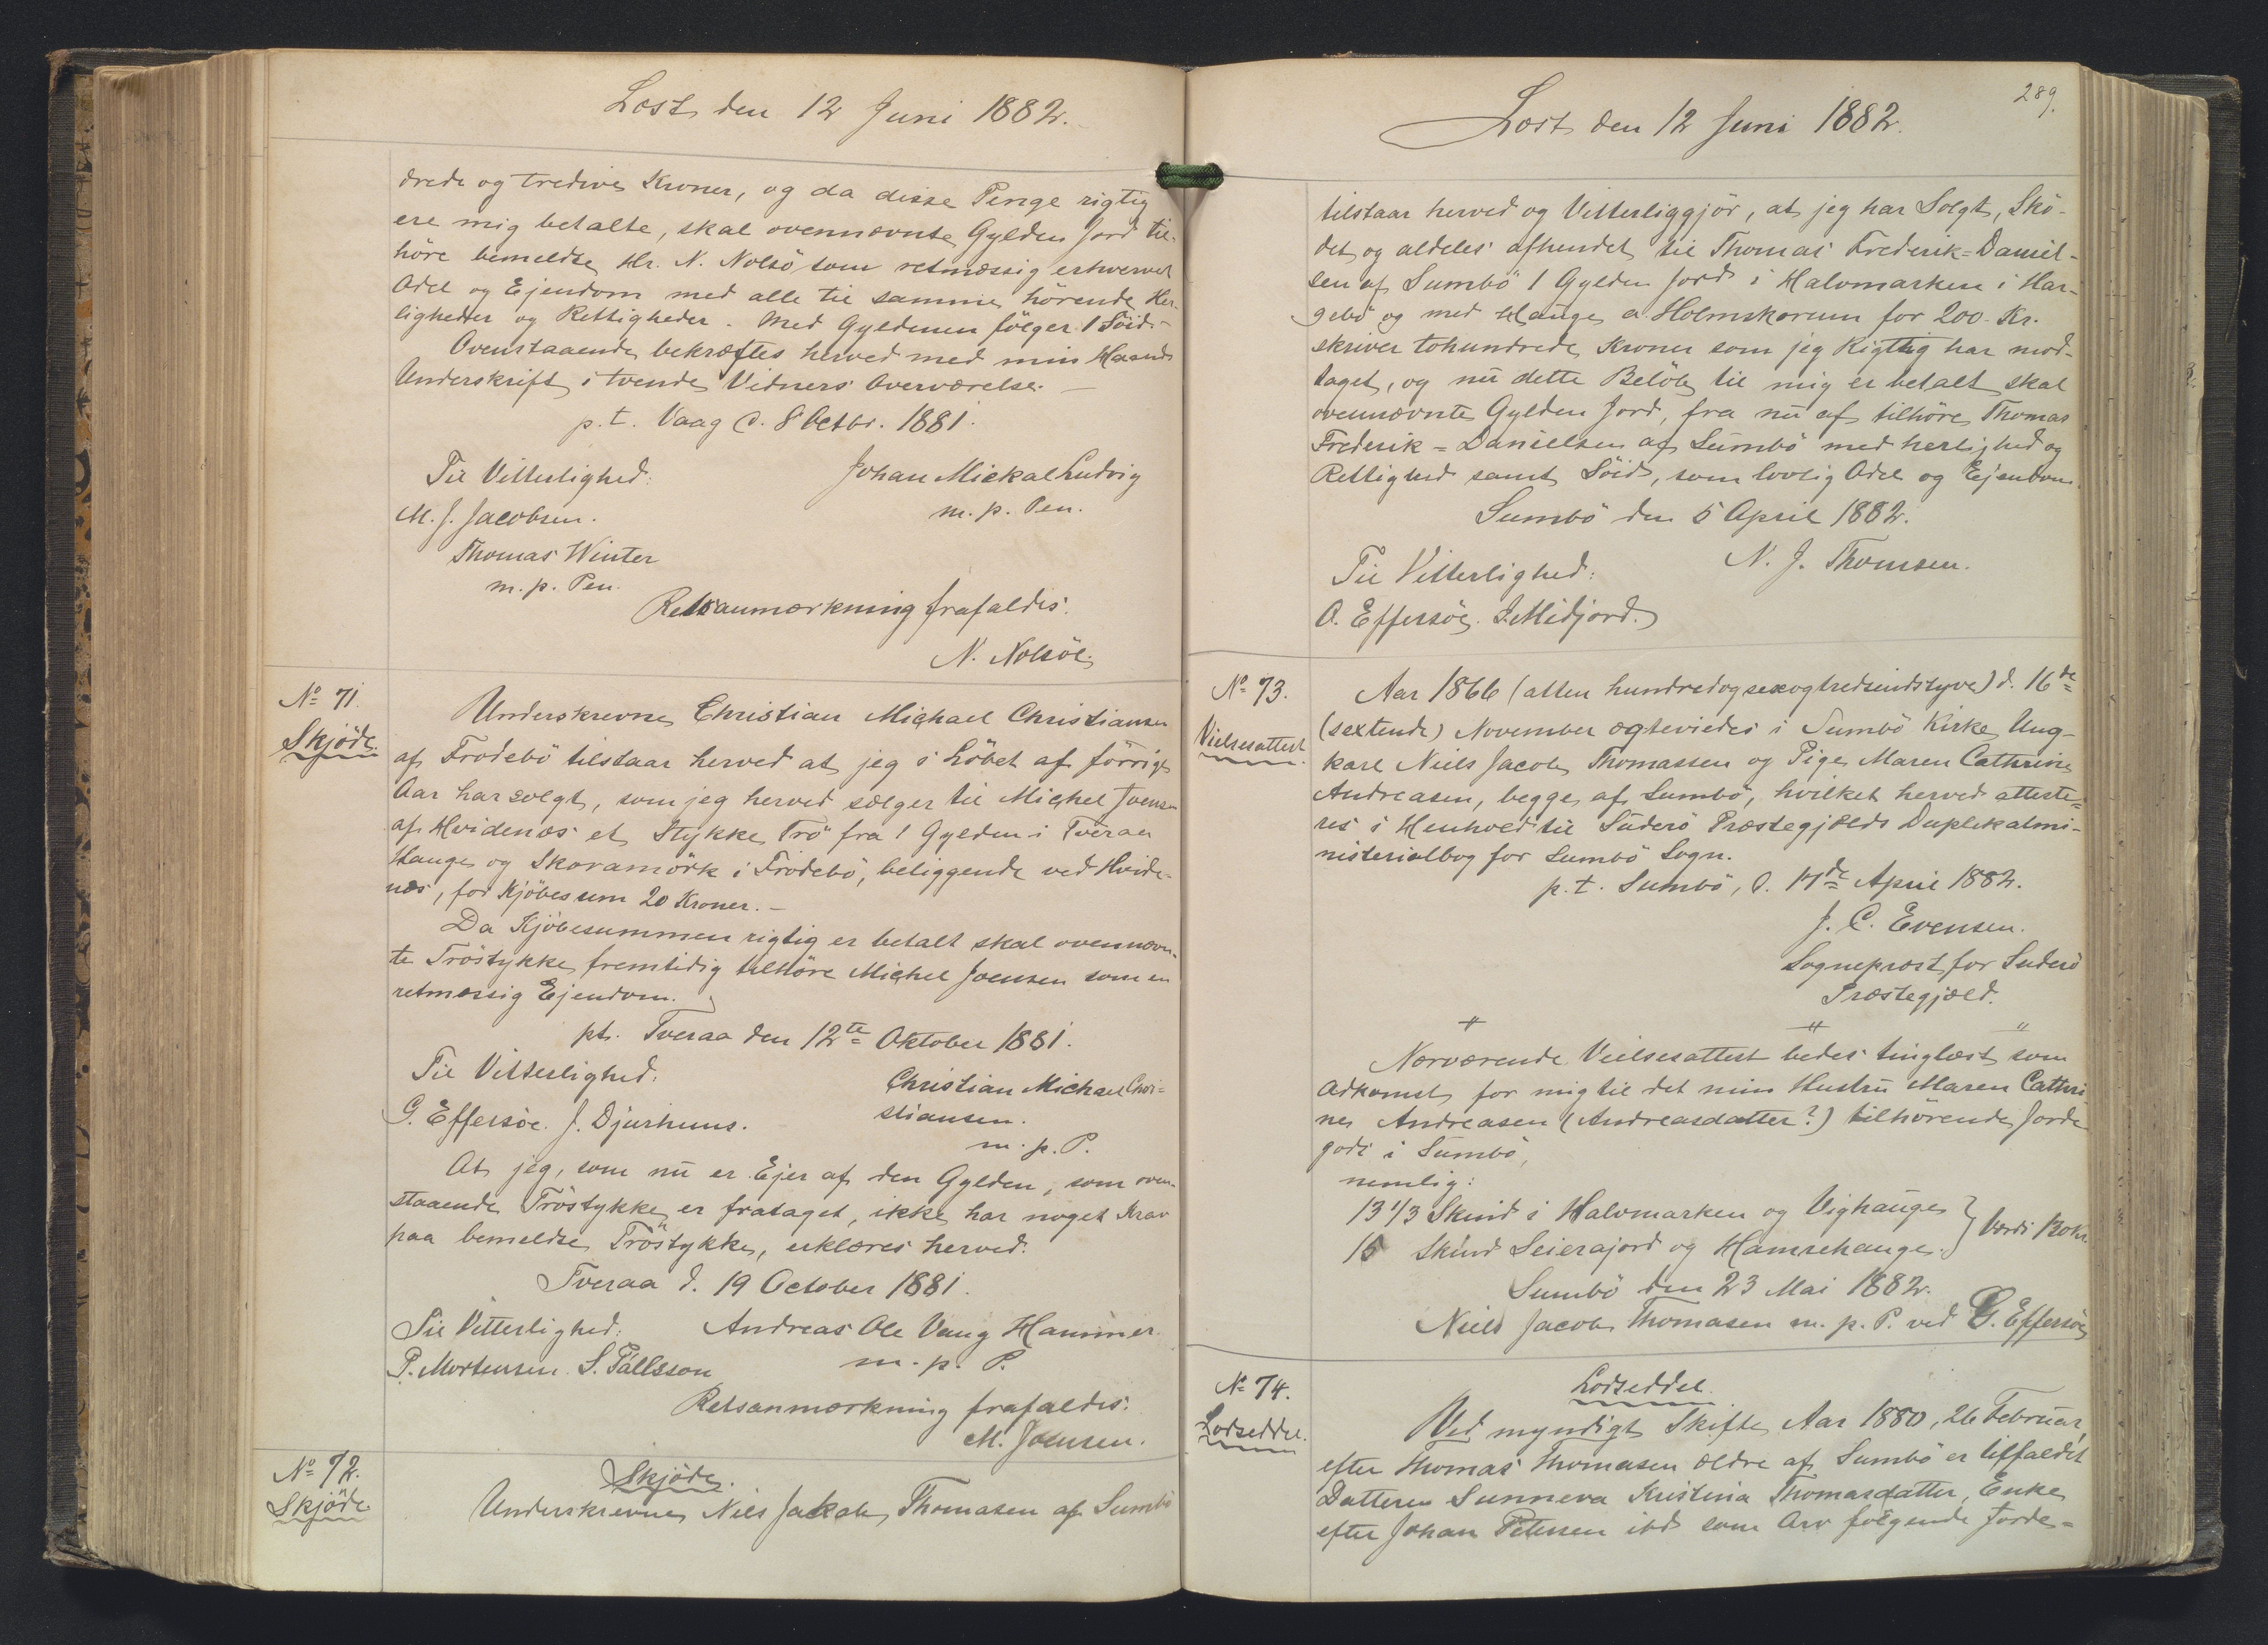 Læst den 12 Juni 1882.
drede og tredive Kroner, og da disse Penge rigtig
ere mig betalte, skal ovennævnte Gylden Jord til-
höre bemeldte Hr. N. Nolsö som retmæssig erhvervet
Odel og Ejendom med alle til samme hörende Her-
ligheder og Rettigheder. Med Gyldenen fölger 1 Söid.-
Ovenstaaende bekræftes herved med min Haands
Underskrift i tvende Vidners Overværelse. —
p.t. Vaag d. 8 Octbr. 1881.
Til Vitterlighed: Johan Mickal Ludvig
M. J. Jacobsen. m. p. Pen.
Thomas Winter
m. p. Pen.
Retsanmærkning frafaldes.
N. Nolsöe.
No 71.
Skjöde.
Underskrevne Christian Michael Christiansen
af Frodebö tilstaar herved at jeg i Löbet af förrige
Aar har solgt, som jeg herved sælger til Michel Joensen
af Hvidenæs et Stykke Trö fra 1 Gylden i Tveraa
Hauge og Skoramörk i Frodebö, beliggende ved Hvide-
næs, for Kjöbesum 20 Kroner. —
Da Kjöbesummen rigtig er betalt skal ovennævn-
te Tröstykke fremtidig tilhöre Michel Joensen som en
retmæssig Ejendom.
pt. Tveraa den 12te Oktober 1881.
Til Vitterlighed: Christian Michael Chri-
G. Effersöe. J. Djurhuus. stiansen.
m. p. P.
At jeg, som nu er Ejer af den Gylden, som oven-
staaende Tröstykke er frataget, ikke har noget Krav
paa bemeldte Tröstykke, erklæres herved.
Tveraa d. 19 October 1881.
Til Vitterlighed: Andreas Ole Vang Hammer.
P. Mortensen. S. Pállsson m. p. P.
Retsanmærkning frafaldes.
M. Joensen.
No 72.
Skjöde.
Skjöde.
Underskrevne Niels Jakob Thomasen af Sumbö
289.
Læst den 12 Juni 1882.
tilstaar herved og Vitterliggjör, at jeg har Solgt, Skö-
det og aldeles afhendet til Thomas Frederik=Daniel-
sen af Sumbö 1 Gylden Jord i Halvmarken i Har-
gebö og med Hauge a Holmskorum for 200 Kr.
skriver tohundrede Kroner som jeg Rigttig har mod-
taget, og nu dette Belöb til mig er betalt skal
ovennævnte Gylden Jord, fra nu af tilhöre Thomas
Frederik=Danielsen af Sumbö med herlighed og
Rettighed samt Söid, som lovlig Odel og Ejendom.
Sumbö den 5 April 1882.
Til Vitterlighed: N. J. Thomsen.
O. Effersöe. J. Midjord.
No 73.
Vielsesattest.
Aar 1866 (atten hundred og sex og tredsindstyve) d. 16de
(sextende) November ægteviedes i Sumbö Kirke Ung-
karl Niels Jacob Thomassen og Pige Maren Cathrine
Andreasen, begge af Sumbö, hvilket herved atteste-
res i Henhold til Suderö Præstegjælds Duplikatmi-
nisterialbog for Sumbö Sogn.
p.t. Sumbö, d. 17de April 1882.
J. C. Evensen.
Sognepræst for Suderö
Præstegjæld.
Nærværende Vielsesattest bedes tinglæst som
Adkomst for mig til det min Hustru Maren Cathri-
ne Andreasen (Andreasdatter?) tilhörende Jorde-
gods i Sumbö,
nemlig:
13 1/3 Skind i Halvmarken og Vighauge } Værdi 120 Kr.
15 Skind Seierajord og Hamrehauge.
Sumbö den 23 Mai 1882.
Niels Jacob Thomasen m. p. P. ved G. Effersöe
No 74.
Lodseddel.
Lodseddel.
Ved myndigt Skifte Aar 1880, 26 Februar,
efter Thomas Thomasen ældre af Sumbö er tilfaldet
Datteren Sunneva Kristina Thomasdatter, Enke
efter Johan Petersen ibd som Arv fölgende Jorde-